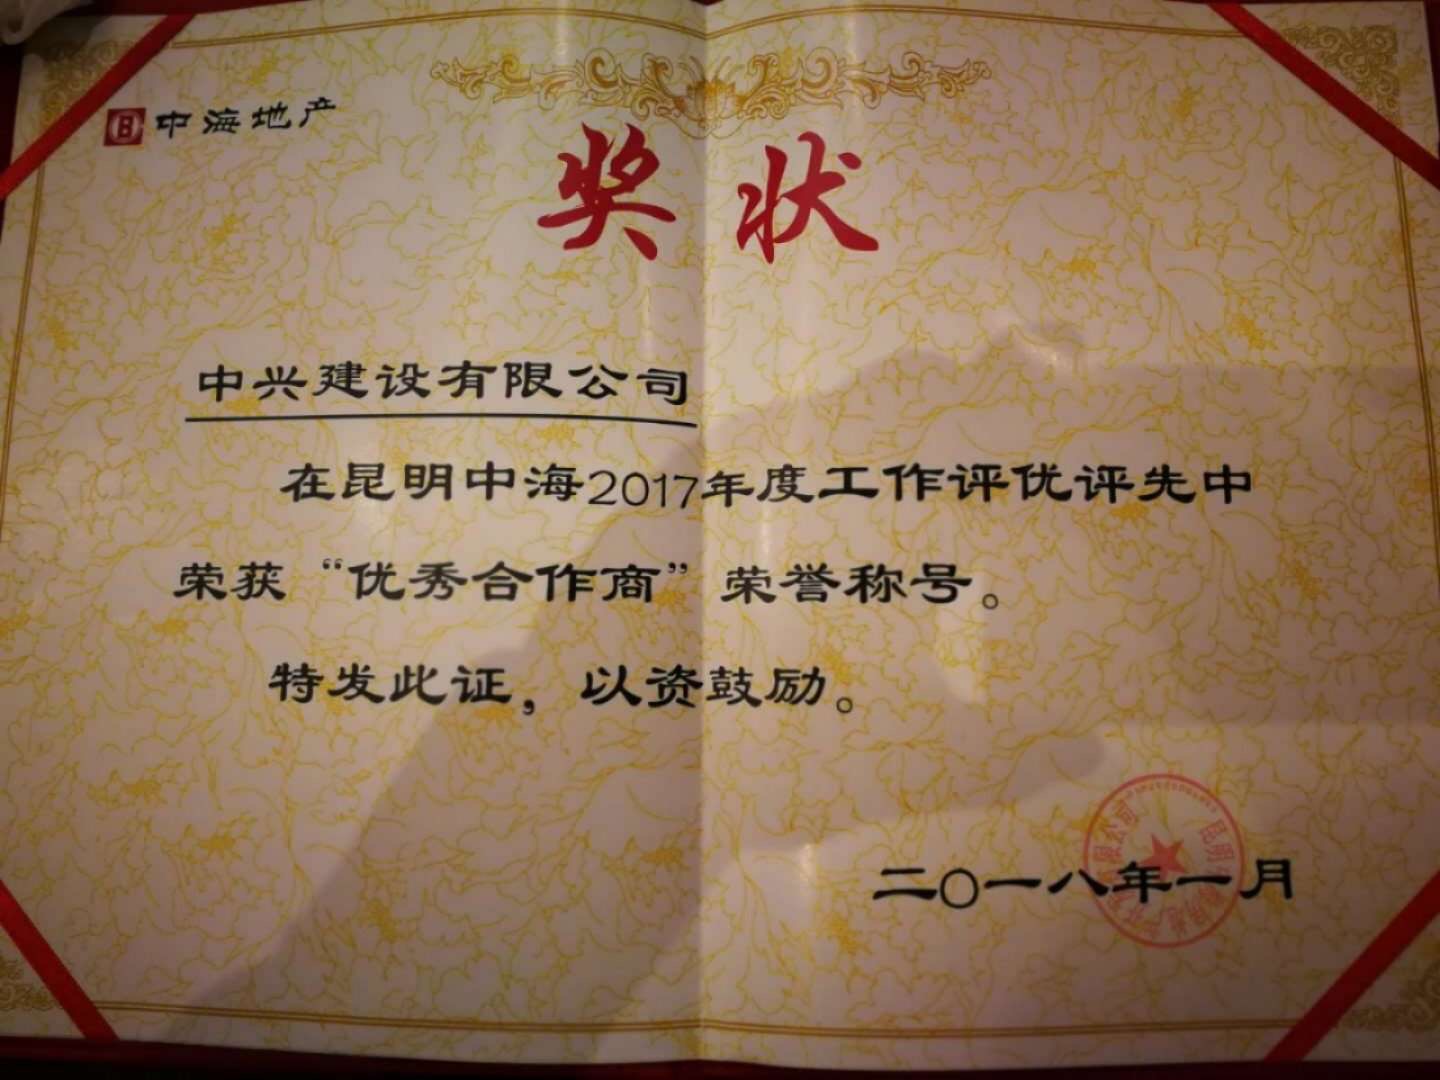 中海地产
奖状
中兴建设有限公司
在昆明中海2017年度工作评优评先中
荣获“优秀合作商”荣誉称号。
特发此证，以资鼓励。
二〇一八年一月